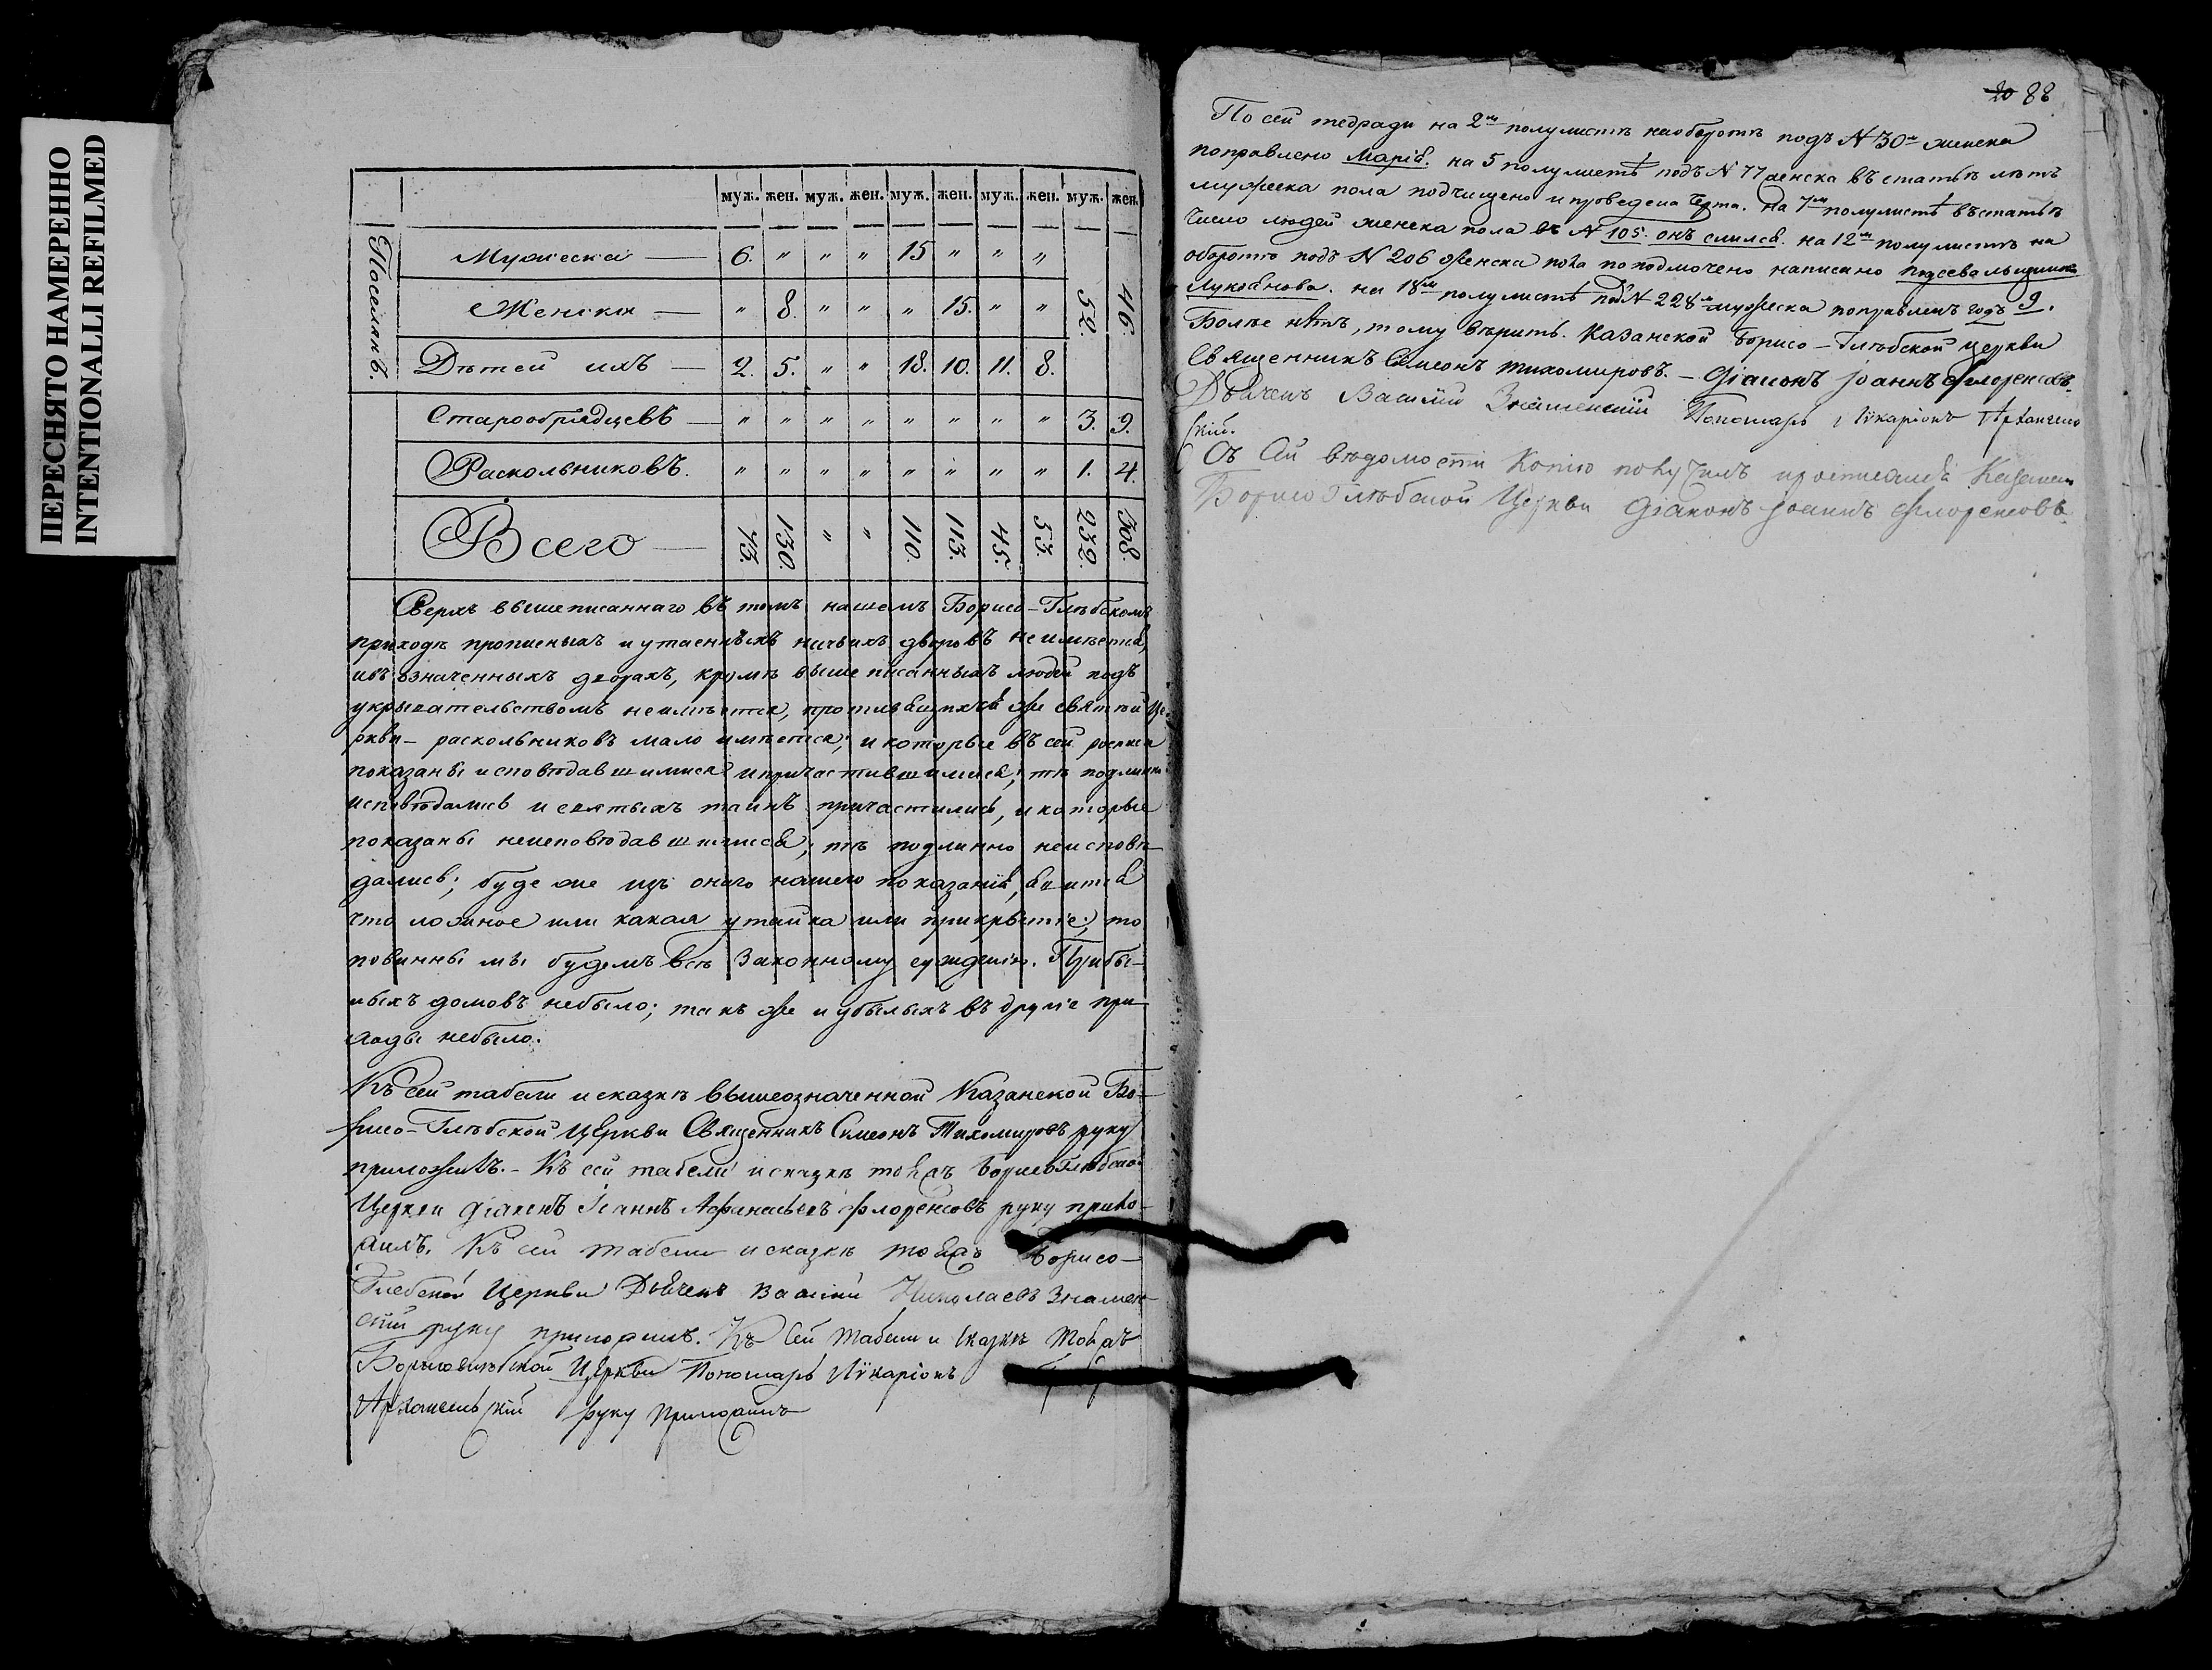 ПЕРЕСНЯТО НАМЕРЕННО
INTENTIONALLI REFILMED
муж. жен. муж. жен. муж. жен. муж. жен. муж. жен.
Поселянъ.
Мужеска — 6. " " " 15 " " "
Женска — " 8. " " " 15. " "
52. 46.
Дѣтей ихъ — 2. 5. " " 18. 10. 11. 8.
Старообрядцевъ — " " " " " " " " 3. 9.
Раскольниковъ. " " " " " " " " 1. 4.
Всего — 73. 130. " " 110. 113. 45. 53. 232. 308.
Сверхъ вышеписаннаго въ томъ нашемъ Борисо-Глѣбскомъ
приходѣ прописныхъ и утаенныхъ ничьихъ дворовъ неимѣется,
ивъ означенныхъ дворахъ, кромѣ вышеписанныхъ людей подъ
укрывательствомъ неимѣется, противящихся же святѣй Це-
ркви - раскольниковъ мало имѣется; и которые въ сей росписи
показаны исповѣдавшимися ипричастившимися; тѣ подлинно
исповѣдались и святыхъ таинъ причастились, и которые
показаны неисповѣдавшимися, тѣ подлинно неисповѣ-
дались; буде же изъ онаго нашего показанія, явится
что ложное или какая утайка или прикрытіе; то
повинны мы будемъ всѣ законному сужденію. Прибы-
лыхъ домовъ небыло; такъ же и убылыхъ въ другіе при-
ходы небыло.
Къ сей табели исказкѣ вышеозначенной Казанской Бо-
рисо-Глѣбской Церкви Священникъ Симеонъ Тихомировъ руку
приложилъ. - Къ сей табели исказкѣ тояжъ БорисоГлѣбской
Церкви Діаконъ Іоаннъ Афанасьевъ Флоренсовъ руку прило-
жилъ. Къ сей табели исказкѣ тояжъ Борисо-
Глебской Церкви Дьячекъ Василий Николаевъ Знамен-
скій руку приложилъ. Къ Сей табели и Сказкѣ Тояжъ
Борисоглѣбской Церкви Пономарь Илларіонъ
Архангельскій руку Приложилъ
20 88
По сей тедради на 2мъ полулистѣ наоборотѣ подъ N 30мъ женска
поправлено Марія. на 5 полулистѣ подъ N 77 женска въ статьѣ лѣтъ
мужеска пола подчищено и проведена Черта. На 7мъ полулистѣ въстатьѣ
число людей женска пола въ N 105. онъ слился. на 12мъ полулистѣ на
оборотѣ подъ N 206 женска пола поподмочено написано
Лукоянова. на 18мъ полулистѣ подъ N 228мъ мужеска поправленъ годъ 9.
Болѣе нѣтъ, тому вѣрить. Казанской Борисо-Глѣбской церкви
Священникъ Симеонъ Тихомировъ. - Діаконъ Іоаннъ Флоренсовъ.
Дьячекъ Василій Знаменскій Пономарь Илларіонъ Архангель
скій.
Съ сей вѣдомости Копію получилъ Казанской
Борисо Глѣбской Церкви Діаконъ Іоаннъ Флоренсовъ.